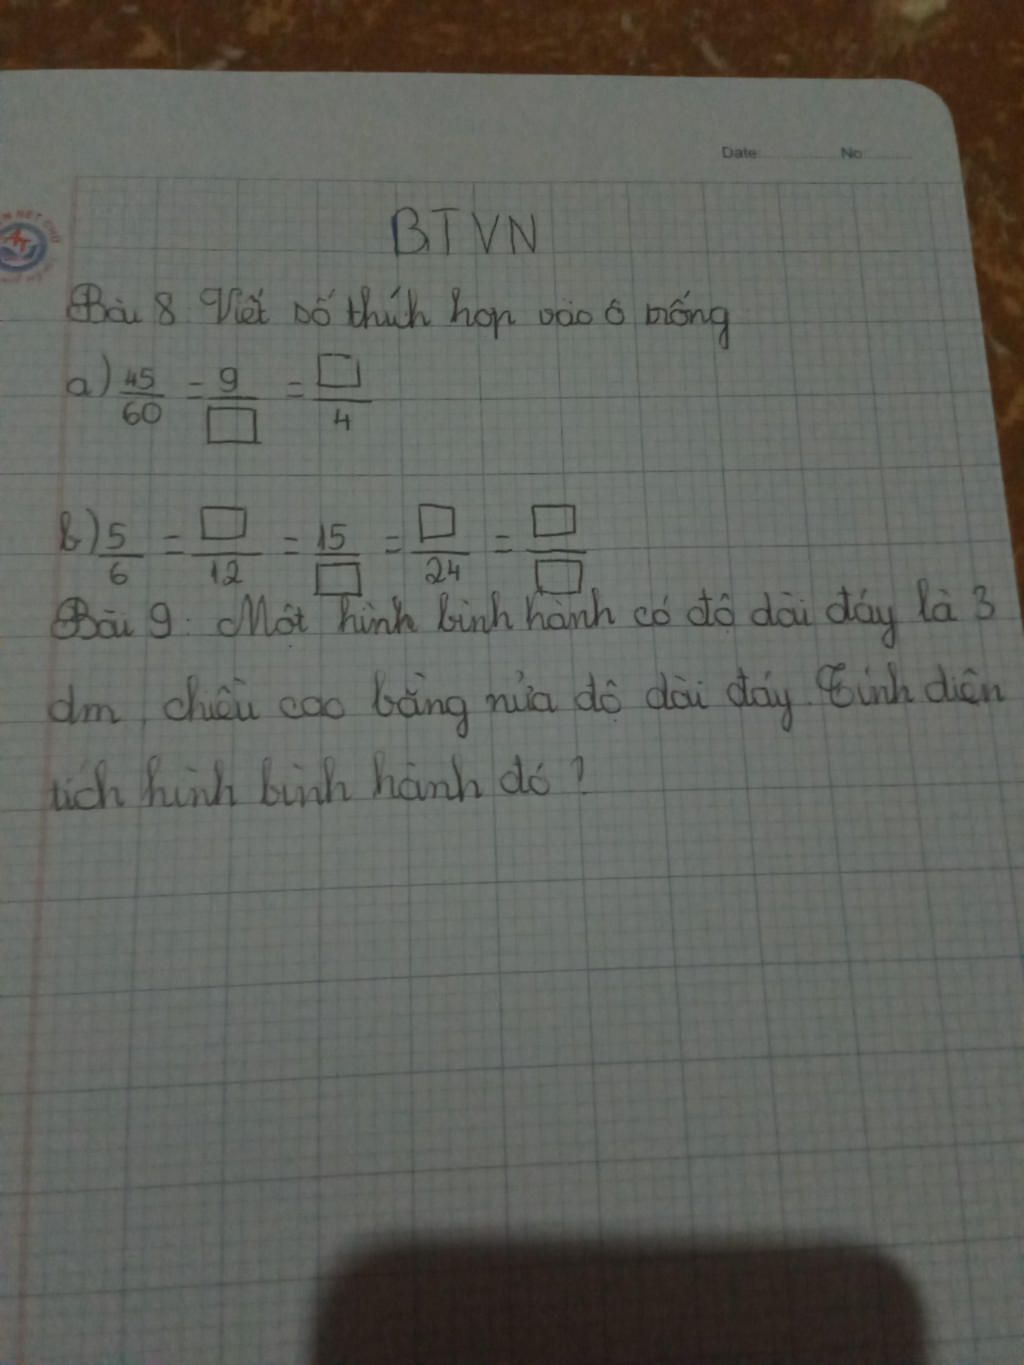 Date No
BTVN
Bài 8 Viết số thích hợp vào ô trống
a) 45/60 = 9/□ = □/4
b) 5/6 = □/12 = 15/□ = □/24 = □/□
Bài 9: Một hình bình hành có độ dài đáy là 3
dm, chiều cao bằng nửa độ dài đáy. Tính diện
tích hình bình hành đó?